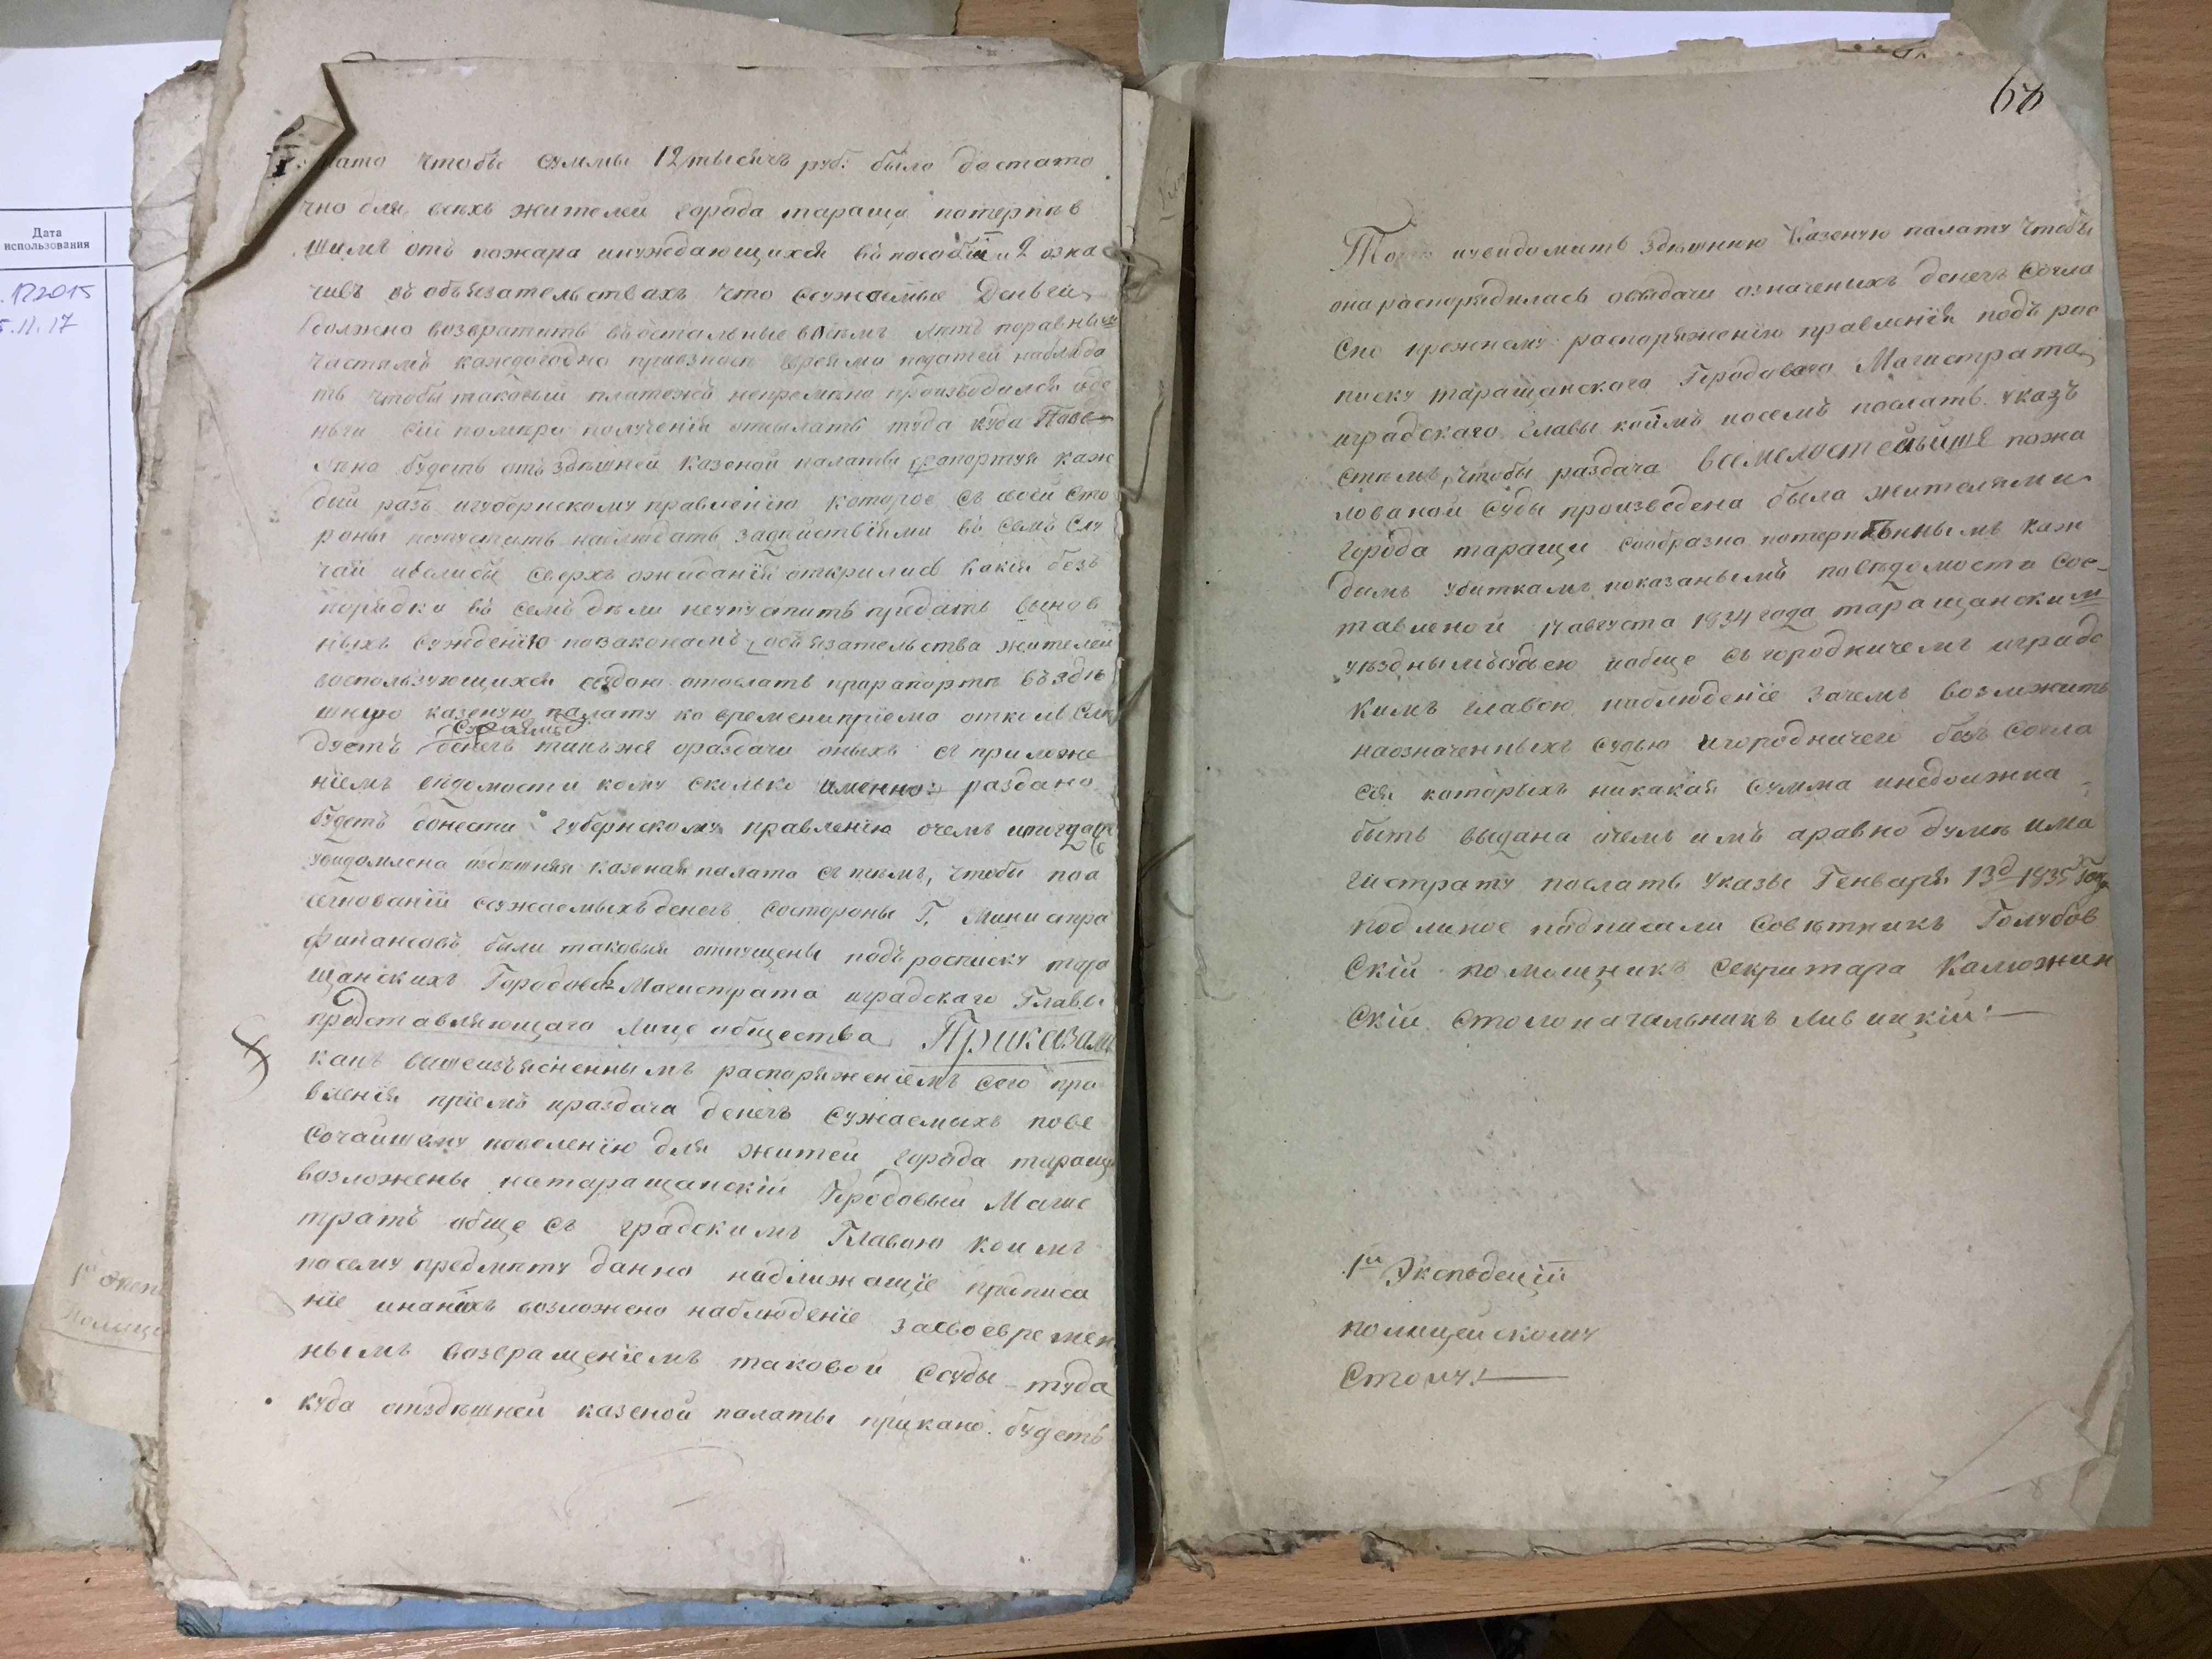 Дата
использования
.12 2015
5.11.17
1й Экспе
полице
нато чтобы суммы 12 тысячъ руб: было достато
чно для всехъ жителей города таращи потерпев
шимъ отъ пожара инуждающихся въ пособіи и 2 озна
чивъ въ объязательствахъ что ссужаемые Деньги
должно возвратить въ остальные восемъ летъ поравнымъ
частямъ каждогодно время податей наблюда
ть чтобы таковый платежъ непременно производился аде
ньги сіи помере полученія отсылать туда куда Пове
лено будетъ отъ здешней казеной палаты рапортуя каж
дый разъ игубернскому правленію которое съ своей сто
роны наблюдать задействіями въ семъ слу
чаи иесли бы сверхъ ожиданія открились какія безъ
порядки въ семъ деле предать винов
ныхъ сужденію позаконамъ, объязательства жителей
воспользующихся ссудою отослать прирапорте въ зде
шнюю казеную палату ко времени пріема отколь сле
Ссуд
дуетъ денегъ такъже ораздачи оныхъ съ приложе
ніемъ ведомости кому сколько именно: раздано
будетъ донести губернскому правленію очемъ итогда
уведомлена издешняя казеная палата съ темъ, чтобы поа
сигнованіи ссужаемыхъ денегъ состороны Г. Министра
финансовъ были таковыя отпущены подъ росписку тара
щанскихъ Городова Магистрата иградскаго Главы
представляющаго лице общества Приказали
какъ вышеизъясненнымъ распоряженіемъ сего пра
вленія пріемъ ираздача денегъ сужаемыхъ пове
сочайшему повеленію для жителй города таращи
возложены натаращанскій Городовый Магис
тратъ обще съ градскимъ Главою коимъ
посему предмету данно надлижащіе предписа
ніе инанихъ возложено наблюденіе засвоевремен
нымъ возвращеніемъ таковой ссуды туда
куда отздешней казеной палаты будетъ
68
То уведомить здешнюю Казеную палату чтобы
она распорядилась овыдачи означеныхъ денегъ Согла
сно прежнему распоряженію правленія подъ рос
писку таращанского Городоваго Магистрата
иградскаго Главы коимъ посемъ послать указъ
стемъ, чтобы раздача всемилостивейше пожа
лованой суды произведена была жителями
города таращи сообразно потерпеннымъ каж
дымъ убиткамъ показанымъ поведомости сос-
тавленой 17 августа 1834 года таращанскимъ
уезднымъ судьею иобще съ городничемъ иградс
кимъ главою наблюденіе зачемъ возложить
наозначенныхъ судью игородничего безъ согла
сія которыхъ никакая сумма инедолжна
быть выдана очемъ имъ аравно думе има
гистрату послать указы Генваря 13д 1835 года
подлиное подписали Советникъ Голубов
скій помощникъ секритара Калюжин
скій столоначальникъ Ливицкій:
1й Экспедиціи
полицейскому
Столу: